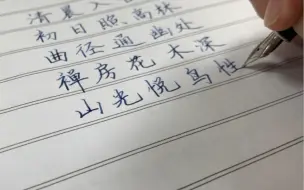 清晨入
初日照高林
曲径通幽处
禅房花木深
山光悦鸟性